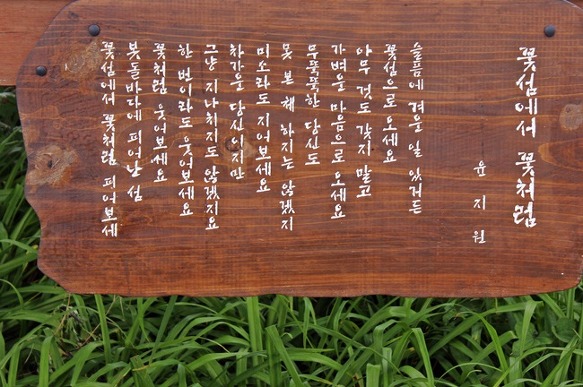 꽃섬에서 꽃처럼
윤지원
슬픔에 겨운 일 있거든
꽃섬으로 오세요
아무 것도 갖지 말고
가벼운 마음으로 오세요
무뚝뚝한 당신도
못 본 채 하지는 않겠지
미소라도 지어보세요
차가운 당신이지만
그냥 지나치지도 않겠지요
한 번이라도 웃어보세요
꽃처럼 웃어보세요
붓돌바다에 피어난 섬
꽃섬에서 꽃처럼 피어보세